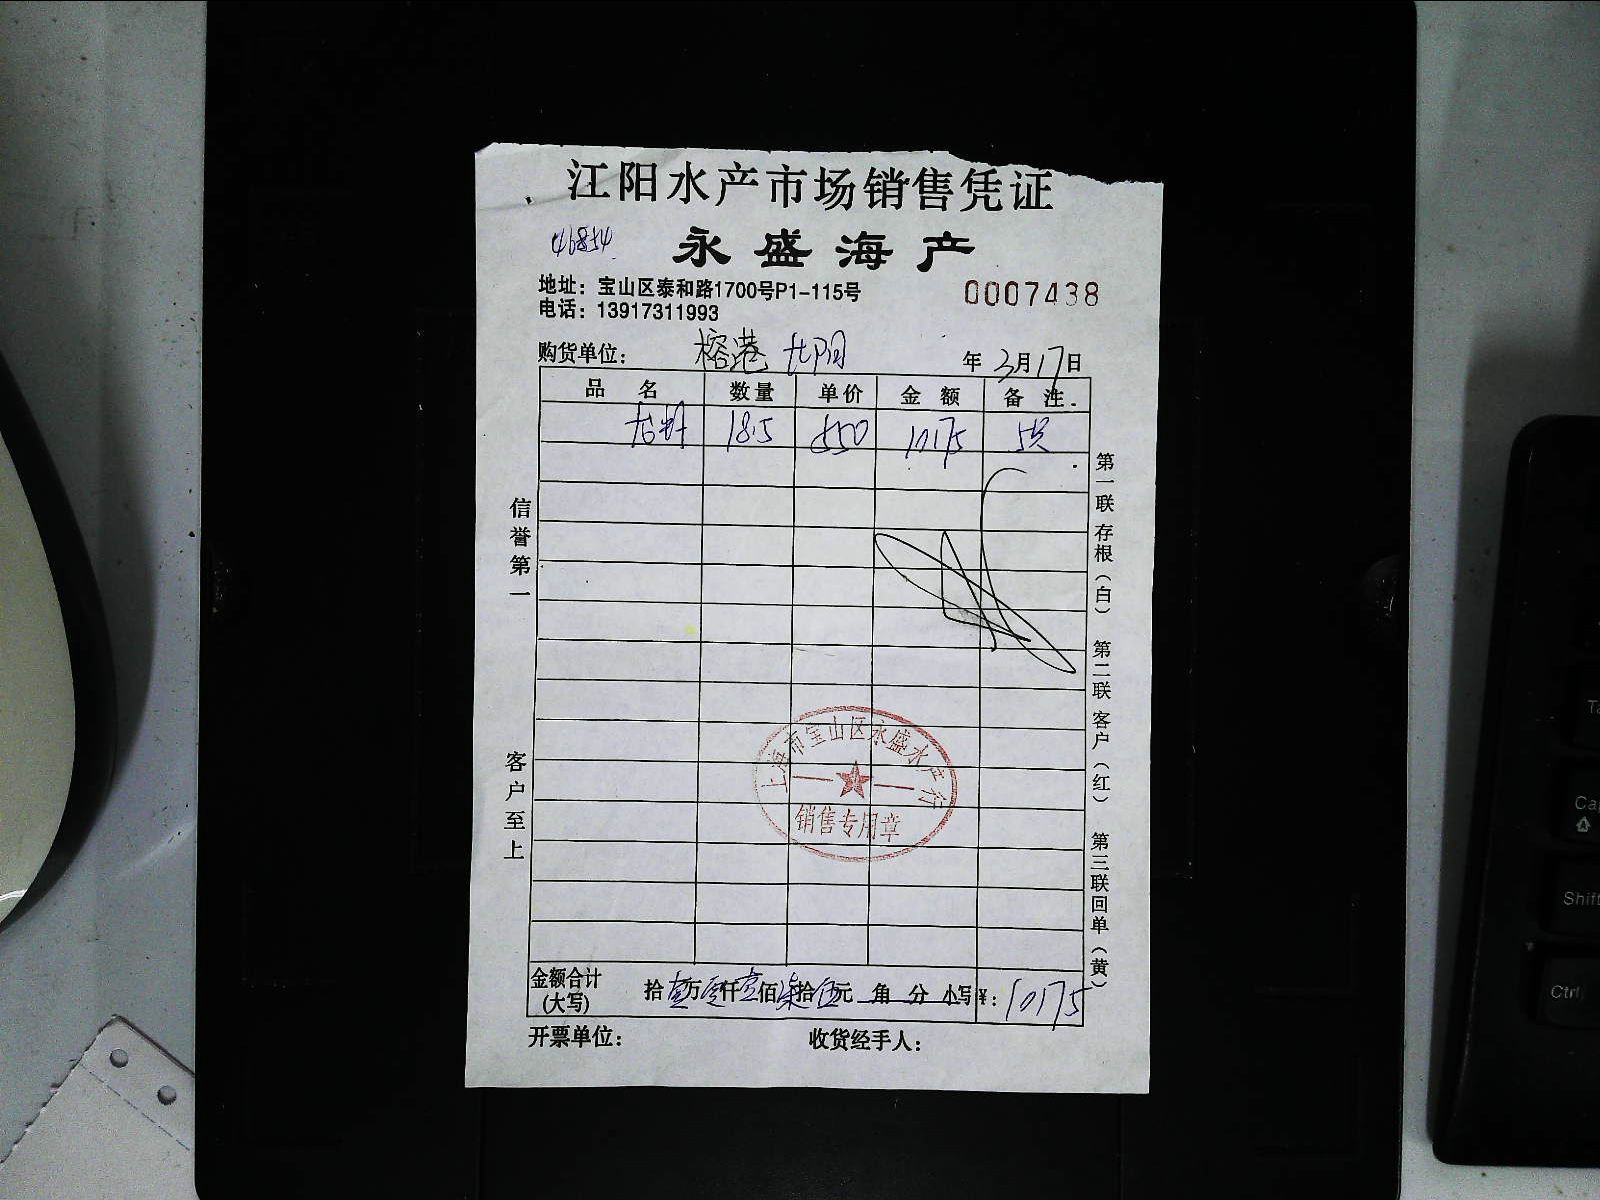 江阳水产市场销售凭证
46854
永盛海产
地址：宝山区泰和路1700号P1-115号
0007438
电话：13917311993
购货单位： 榕港 年 3月17日
品 名 数量 单价 金 额 备 注
18.5 550 10175
信誉第一
客户至上
第一联 存根（白） 第二联 客户（红） 第三联 回单（黄）
上海市宝山区永盛水产行
销售专用章
金额合计
(大写)
拾壹万零仟壹佰柒拾伍元 角 分 小写¥：10175
开票单位： 收货经手人：
Ta
Ca
Shift
Ctrl